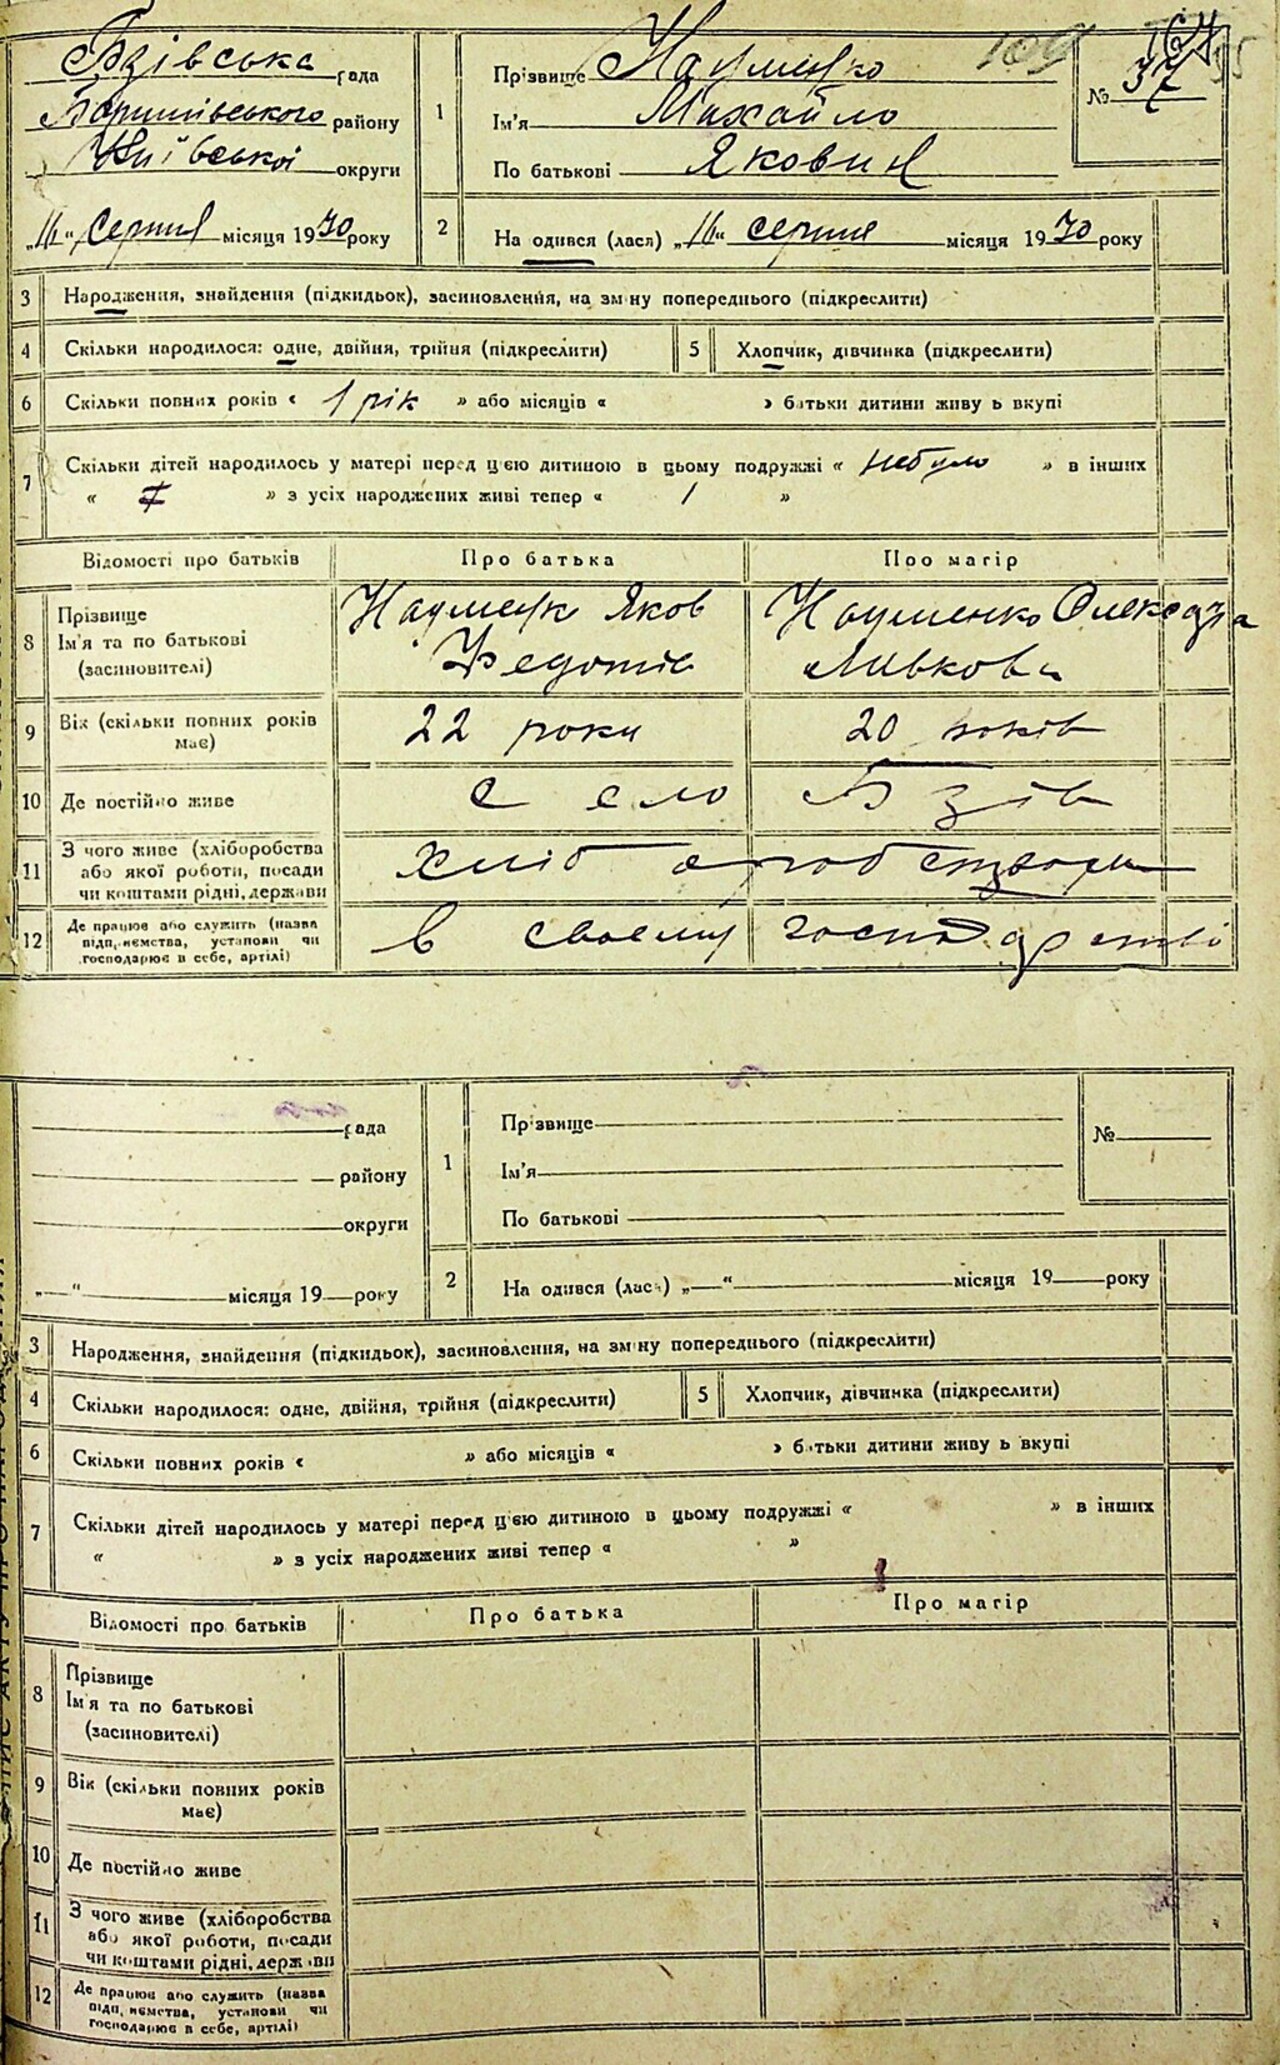 Бзівська рада
Баришівського району
Київської округи
1
Прізвище Науменко
Ім'я Михайло
По батькові Якович
109
№ 37
„16“ Серпня місяця 1930 року
2
На одився (лася) „16“ серпня місяця 1930 року
3 Народження, знайдення (підкидьок), засиновлення, на зм ну попереднього (підкреслити)
4 Скільки народилося: одне, двійня, трійня (підкреслити) 5 Хлопчик, дівчинка (підкреслити)
6 Скільки повних років « 1 рік » або місяців « » батьки дитини живу ь вкупі
7 Скільки дітей народилось у матері перед цією дитиною в цьому подружжі « небуло » в інших
« » з усіх народжених живі тепер « 1 »
Відомості про батьків Про батька Про матір
8 Прізвище Ім'я та по батькові (засиновителі)
Науменк Яков Федотів
Науменко Олександра Ливкова
9 Вік (скільки повних років має) 22 роки 20 років
10 Де постійно живе село Бзів
11 З чого живе (хліборобства або якої роботи, посади чи коштами рідні, держави
хліб оробством
12 Де працює або служить (назва підп, иємства, установи чи господарює в себе, артілі)
в своєму господарстві
рада
району
округи
1
Пр звище
Ім'я
По батькові
№
„ “ місяця 19 року
2
На одився (лася) „ “ місяця 19 року
3 Народження, знайдення (підкидьок), засиновлення, на зм ну попереднього (підкреслити)
4 Скільки народилося: одне, двійня, трійня (підкреслити) 5 Хлопчик, дівчинка (підкреслити)
6 Скільки повних років « » або місяців « » батьки дитини живу ь вкупі
7 Скільки дітей народилось у матері перед цією дитиною в цьому подружжі « » в інших
« » з усіх народжених живі тепер « »
Відомості про батьків Про батька Про матір
8 Прізвище
Ім'я та по батькові
(засиновителі)
9 Вік (скільки повних років
має)
10 Де постійно живе
11 З чого живе (хліборобства
або якої роботи, посади
чи коштами рідні, держави
12 Де працює або служить (назва
підп, иємства, установи чи
господарює в себе, артілі)